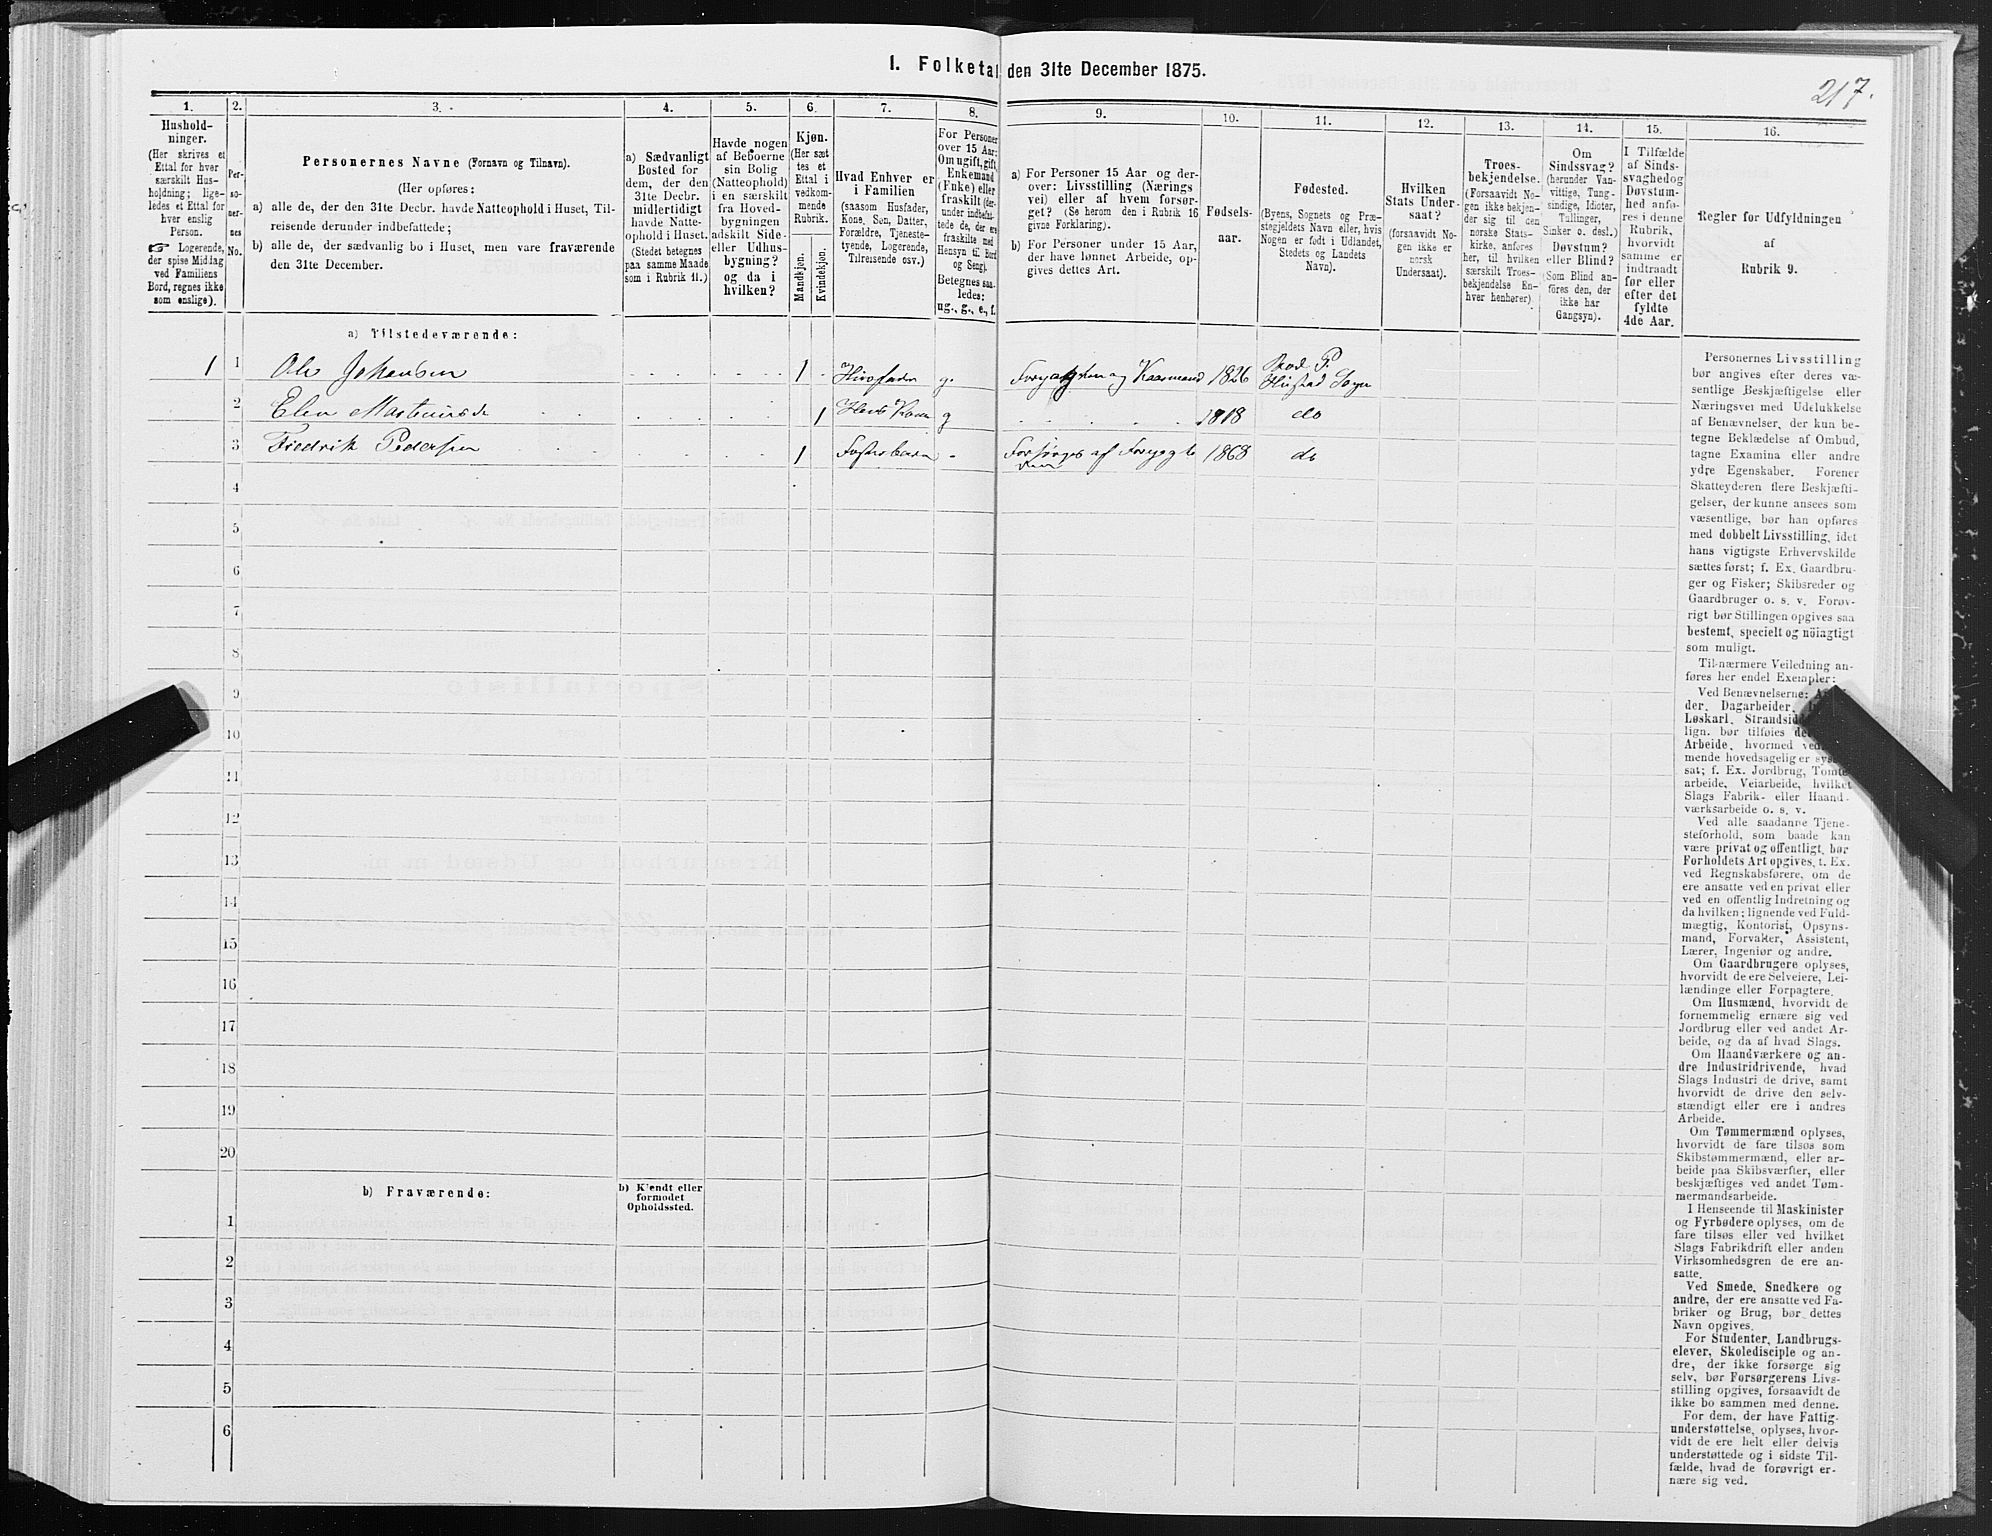 I. Folketal den 31te December 1875.
217.
1. 2. 3. 4. 5. 6. 7. 8. 9. 10. 11. 12. 13. 14. 15. 16.
Hushold-
ninger.
(Her skrives et
Ettal for hver
særskilt Hus-
holdning; lige-
ledes et Ettal for
hver enslig
Person.
☞ Logerende,
der spise Middag
ved Familiens
Bord, regnes ikke
som enslige).
Per-
so-
ner-
nes
No.
Personernes Navne (Fornavn og Tilnavn).
(Her opføres:
a) alle de, der den 31te Decbr. havde Natteophold i Huset, Til-
reisende derunder indbefattede;
b) alle de, der sædvanlig bo i Huset, men vare fraværende
den 31te December.
a) Sædvanligt
Bosted for
dem, der den
31te Decbr.
midlertidigt
havde Natte-
ophold i Huset.
(Stedet betegnes
paa samme Maade
som i Rubrik 11.)
Havde nogen
af Beboerne
sin Bolig
(Natteophold)
i en særskilt
fra Hoved-
bygningen
adskilt Side-
eller Udhus-
bygning?
og da i
hvilken?
Kjøn.
(Her sæt
tes et
Ettal i
vedkom-
mende
Rubrik.
Mandkjøn.
Kvindekjøn.
Hvad Enhver er
i Familien
(saasom Husfader,
Kone, Søn, Datter,
Forældre, Tjeneste-
tyende, Logerende,
Tilreisende osv.)
For Personer
over 15 Aar:
Om ugift, gift,
Enkemand
(Enke) eller
fraskilt (der-
under indbefat-
tede de, der ere
fraskilte med
Hensyn til Bord
og Seng).
Betegnes saa-
ledes:
ug., g., e., f.
a) For Personer 15 Aar og der-
over: Livsstilling (Nærings
vei) eller af hvem forsør-
get? (Se herom den i Rubrik 16
givne Forklaring).
b) For Personer under 15 Aar,
der have lønnet Arbeide, op-
gives dettes Art.
Fødsels-
aar.
Fødested.
(Byens, Sognets og Præ-
stegjeldets Navn eller, hvis
Nogen er født i Udlandet,
Stedets og Landets
Navn).
Hvilken
Stats Under-
saat?
(forsaavidt No-
gen ikke er
norsk
Undersaat).
Troes-
bekjendelse.
(Forsaavidt No-
gen ikke bekjen-
der sig til den
norske Stats-
kirke, anføres
her, til hvilken
særskilt Troes-
bekjendelse En-
hver henhører)
Om
Sindssvag?
(herunder Van-
vittige, Tung-
sindige, Idioter,
Tullinger,
Sinker o. desl.)
Døvstum?
eller Blind?
(Som Blind an-
föres den, der
ikke har
Gangsyn).
I Tilfælde
af Sinds-
svaghed og
Døvstum-
hed anfø-
res i denne
Rubrik,
hvorvidt
samme er
indtraadt
før eller
efter det
fyldte
4de Aar.
Regler for Udfyldningen
af
Rubrik 9.
a) Tilstedeværende:
1 1 Ole Johansen 1 Husfader g. og Kaarmand 1826 Bod P. Hustad Sogn
2 Elen 1 Hans Kone g 1818 do
3 Fredrik Pedersen 1 Fosterbarn - Forsørges af 1868 do
4
5
6
7
8
9
10
11
12
13
14
15
16
17
18
19
20
b) Fraværende:
b) Kjendt eller
formodet
Opholdssted.
1
2
3
4
5
6
Personernes Livsstilling
bør angives efter deres væ-
sentlige Beskjæftigelse eller
Næringsvei med Udelukkelse
af Benævnelser, der kun be-
tegne Beklædelse af Ombud,
tagne Examina eller andre
ydre Egenskaber. Forener
Skatteyderen flere Beskjæfti-
gelser, der kunne ansees som
væsentlige, bør han opføres
med dobbelt Livsstilling, idet
hans vigtigste Erhvervskilde
sættes først; f. Ex. Gaardbru-
ger og Fisker; Skibsreder og
Gaardbruger o. s. v. Forøv-
rigt bør Stillingen opgives saa
bestemt, specielt og nöiagtigt
som muligt.
Til nærmere Veiledning an-
føres her endel Exempler:
Ved Benævnelserne:
der, Dagarbeider,
Løskarl, Strandsid
lign. bør tilføies
Arbeide, hvormed
mende hovedsagelig er
sat; f. Ex. Jordbrug, Tomte-
arbeide, Veiarbeide, hvilket
Slags Fabrik- eller Haand-
værksarbeide o. s. v.
Ved alle saadanne Tjene-
steforhold, som baade kan
være privat og offentligt, bør
Forholdets Art opgives, f. Ex.
ved Regnskabsførere, om de
ere ansatte ved en privat eller
ved en offentlig Indretning og
da hvilken; lignende ved Fuld-
mægtig, Kontorist, Opsyns-
mand, Forvalter, Assistent,
Lærer, Ingeniør og andre.
Om Gaardbrugere oplyses,
hvorvidt de ere Selveiere, Lei-
lændinge eller Forpagtere.
Om Husmænd, hvorvidt de
fornemmelig ernære sig ved
Jordbrug eller ved andet Ar-
beide, og da af hvad Slags.
Om Haandværkere og an-
dre Industridrivende, hvad
Slags Industri de drive, samt
hvorvidt de drive den selv-
stændigt eller ere i andres
Arbeide.
Om Tømmermænd oplyses,
hvorvidt de fare tilsøs som
Skibstømmermænd, eller ar-
beide paa Skibsværfter, eller
beskjæftiges ved andet Tøm-
mermandsarbeide.
I Henseende til Maskinister
og Fyrbødere oplyses, om de
fare tilsøs eller ved hvilket
Slags Fabrikdrift eller anden
Virksomhedsgren de ere an-
satte.
Ved Smede, Snedkere og
andre, der ere ansatte ved Fa-
briker og Brug, bør dettes
Navn opgives.
For Studenter, Landbrugs-
elever, Skoledisciple og an-
dre, der ikke forsørge sig
selv, bør Forsørgerens Livs-
stilling opgives, forsaavidt de
ikke bo sammen med denne.
For dem, der have Fattig-
understøttelse, oplyses, hvor-
vidt de ere helt eller delvis
understøttede og i sidste Til-
fælde, hvad de forøvrigt er-
nære sig ved.